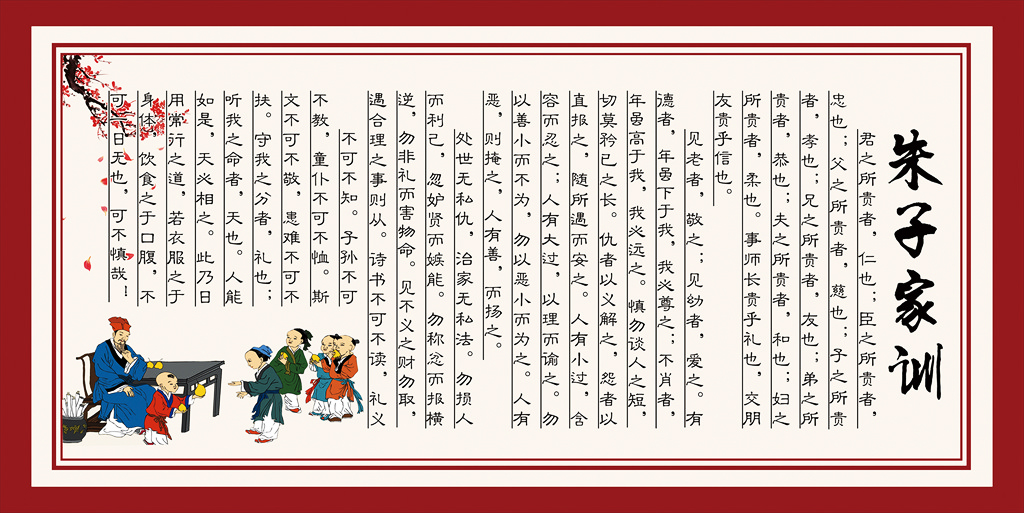 朱子家训
君之所贵者，仁也；臣之所贵者，
忠也；父之所贵者，慈也；子之所贵
者，孝也；兄之所贵者，友也；弟之所
贵者，恭也；夫之所贵者，和也；妇之
所贵者，柔也。事师长贵乎礼也，交朋
友贵乎信也。
见老者，敬之；见幼者，爱之。有
德者，年虽下于我，我必尊之；不肖者，
年虽高于我，我必远之。慎勿谈人之短，
切莫矜己之长。仇者以义解之，怨者以
直报之，随所遇而安之。人有小过，含
容而忍之；人有大过，以理而谕之。勿
以善小而不为，勿以恶小而为之。人有
恶，则掩之，人有善，而扬之。
处世无私仇，治家无私法。勿损人
而利己，忽妒贤而嫉能。勿称忿而报横
逆，勿非礼而害物命。见不义之财勿取，
遇合理之事则从。诗书不可不读，礼义
不可不知。子孙不可
不教，童仆不可不恤。斯
文不可不敬，患难不可不
扶。守我之分者，礼也；
听我之命者，天也。人能
如是，天必相之。此乃日
用常行之道，若衣服之于
身体，饮食之于口腹，不
可一日无也，可不慎哉！